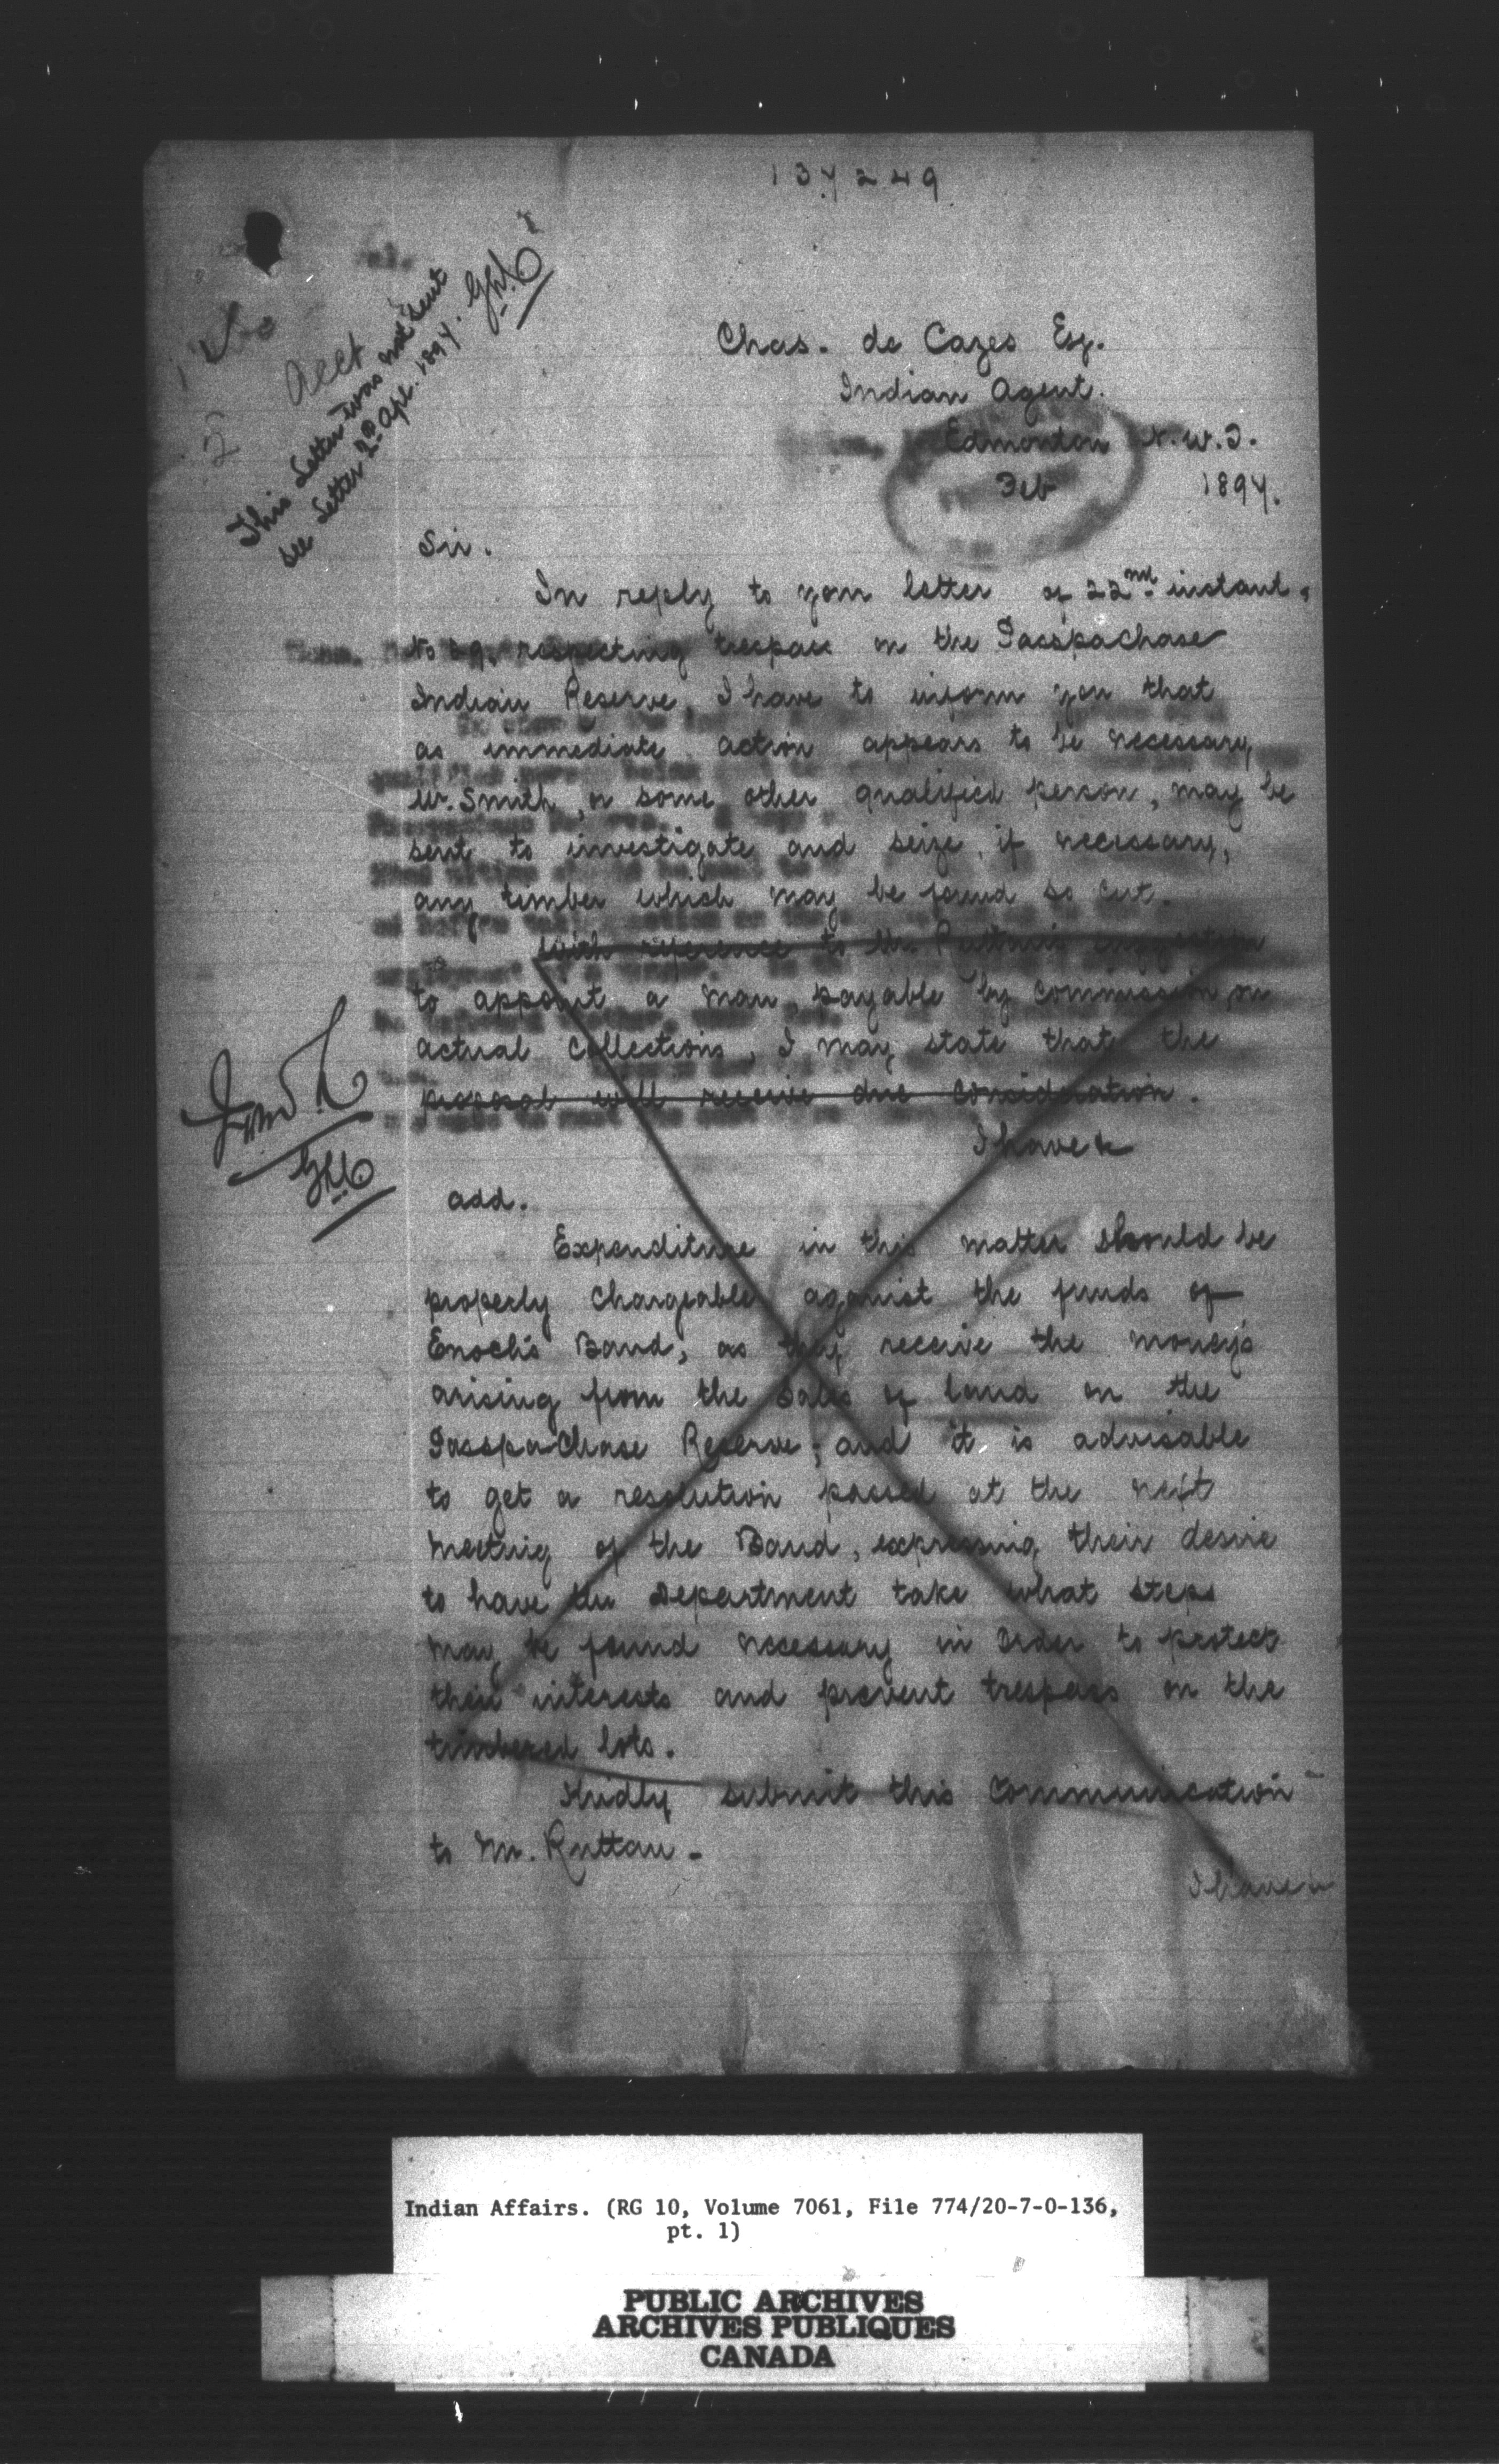 137249
This letter was not sent
see letter 2nd Apl. 1897.
Acct
Chas. de Cazes Esq.
Indian Agent.
Edmonton N.W.T.
Feb 1897.
Sir.
In reply to your letter of 22nd instant,
No 39, respecting trespass on the PasspaChase
Indian Reserve, I have to inform you that
as immediate action appears to be necessary,
Mr. Smith, or some other qualified person, may be
sent to investigate and seize, if necessary,
any timber which may be found so cut.
With reference to Mr. Ruttan's suggestion
to appoint a man, payable by commission on
actual collections, I may state that the
proposal will receive due consideration.
I have &
add.
Expenditure in this matter should be
properly chargeable against the funds of
Enoch's Band, as they receive the moneys
arising from the sales of land on the
PasspaChase Reserve; and it is advisable
to get a resolution passed at the next
meeting of the Band, expressing their desire
to have the Department take what steps
may be found necessary in order to protect
their interests and prevent trespass on the
timbered lots.
Kindly submit this communication
to Mr. Ruttan -
I have &
Indian Affairs. (RG 10, Volume 7061, File 774/20-7-0-136,
pt. 1)
PUBLIC ARCHIVES
ARCHIVES PUBLIQUES
CANADA